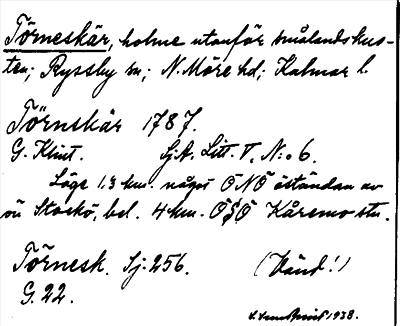 Törneskär, holme utanför smålandskus-
ten; Ryssby sn; N. Möre hd; Kalmar l.
Törnskär 1787.
G. Klint. Sj.A. Litt. V, N:o 6.
Läge 1,3 km. något ÖNÖ öständan av
ön Stockö, bel. 4 km. ÖSÖ Kåremo stn.
Törnesk. Sj. 256. (Vänd!)
G. 22.
1938.